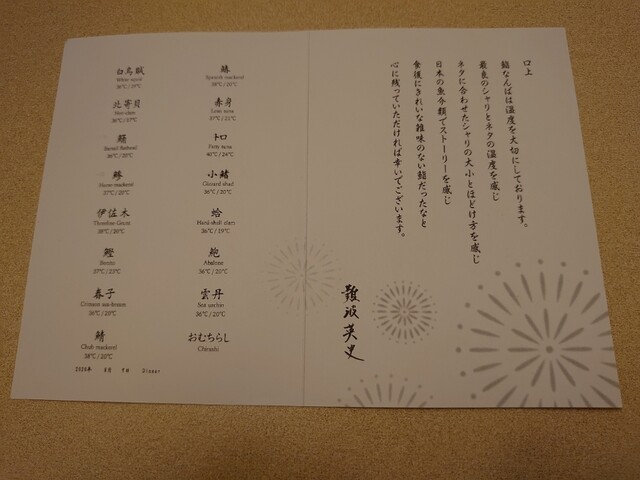 口上
鮨なんばは温度を大切にしております。
最良のシャリとネタの温度を感じ
ネタに合わせたシャリの大小とほどけ方を感じ
日本の魚介類でストーリーを感じ
食後にきれいな雑味のない鮨だったなと
心に残っていただければ幸いでございます。
難波英史
白烏賊
White squid
36℃ / 19℃
北寄貝
Hen clam
鯒
Bartail flathead
36℃ / 20℃
鯵
Horse mackerel
37℃ / 20℃
伊佐木
Threeline Grunt
38℃ / 20℃
鰹
Bonito
37℃ / 23℃
春子
Crimson sea-bream
36℃ / 20℃
鯖
Chub mackerel
38℃ / 20℃
鰆
Spanish mackerel
赤身
Lean tuna
トロ
Fatty tuna
40℃ / 24℃
小鰭
Gizzard shad
36℃ / 20℃
蛤
Hard shell clam
36℃ / 19℃
鮑
Abalone
36℃ / 20℃
雲丹
Sea urchin
36℃ / 20℃
おむちらし
Chirashi
PM Dinner